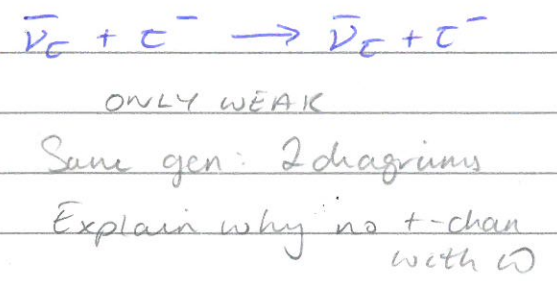 ν̄_τ + τ⁻ ⟶ ν̄_τ + τ⁻
ONLY WEAK
Same gen: 2 diagrams
Explain why no t-chan
with W